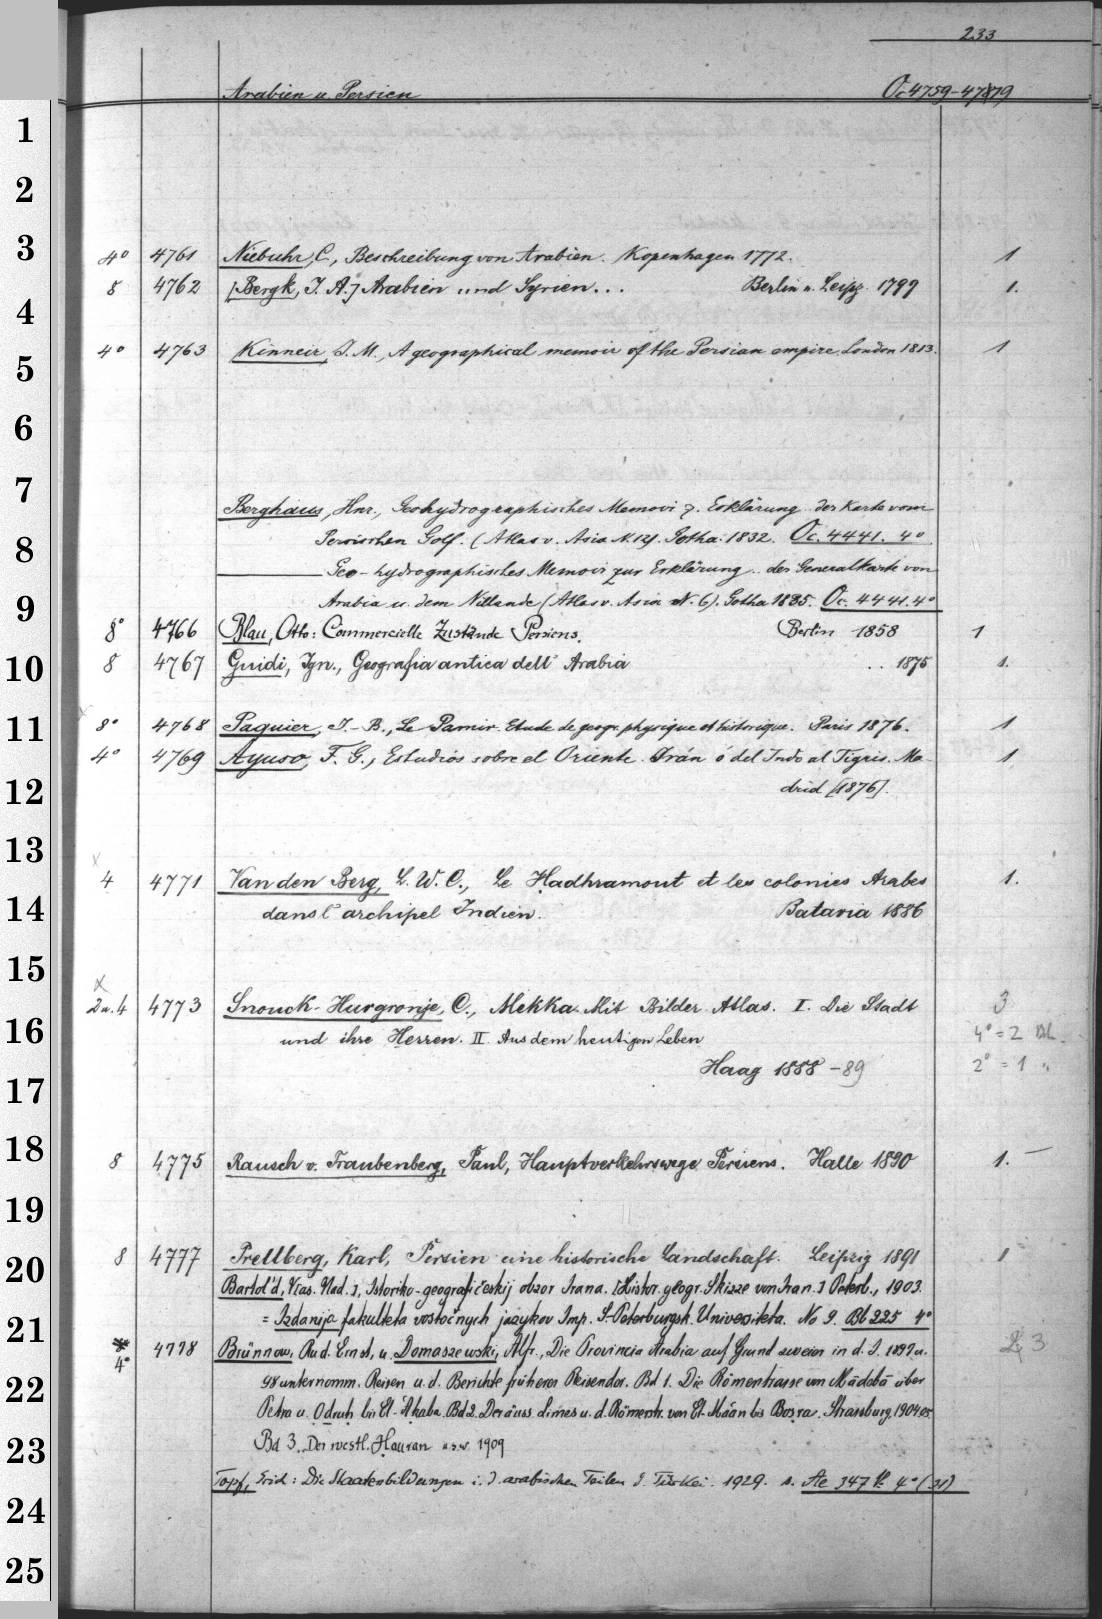 233
Arabien u. Persien Oc 4759-4779
1
2
3
4° 4761 Niebuhr, C., Beschreibung von Arabien. Kopenhagen 1772. 1
8 4762 [Bergk, J. A.] Arabien und Syrien... Berlin u. Leipz. 1799 1.
4
4° 4763 Kinneir, J. M., A geographical memoir of the Persian empire. London 1813. 1
5
6
7
Berghaus, Hnr., Geohydrographisches Memoir z. Erklärung der Karte vom
8
Persischen Golf. (Atlas v. Asia Gotha. 1832. Oc. 4441. 4°
Geo-hydrographisches Memoir zur Erklärung .. der Generalkarte von
9
Arabia u. dem Nillande (Atlas v. Asia N. 6). Gotha 1835. Oc. 4441. 4°
8° 4766 Blau, Otto: Commercielle Zustände Persiens. Berlin 1858 1
10
8 4767 Guidi, Ign., Geografia antica dell' Arabia .. 1875 1.
11
8° 4768 Paquier, J.-B., Le Pamir. Etude de geogr. physique et historique. Paris 1876. 1
4° 4769 Ayuso, F. G., Estudios sobre el Oriente. Irán ó del Indo al Tigris. Ma-
12
drid [1876].
13
x
4 4771 Van den Berg, L. W. C., Le Hadhramout et les colonies Arabes 1.
14
dans l'archipel Indien. Batavia 1886
15
x
2 u. 4 4773 Snouck-Hurgronje, C., Mekka. Mit Bilder-Atlas. I. Die Stadt 3
16
und ihre Herren. II. Aus dem heutigen Leben 4° = 2 Bd.
Haag 1888-89 2° = 1 "
17
18
8 4775 Rausch v. Traubenberg, Paul, Hauptverkehrswege Persiens. Halle 1890 1. —
19
8 4777 Prellberg, Karl, Persien eine historische Landschaft. Leipzig 1891 1
20
Bartol'd, V[as. Vlad.], Istoriko-geografičeskij obzor Irana. [Histor. geogr. Skizze von Iran.] Peterb., 1903.
= Izdanija fakulteta vostočnych jazykov Imp. S-Peterburgsk. Universiteta. No 9. Bb 225 4°
21
4° 4778 Brünnow, Rud. Ernst, u. Domaszewski, Alfr., Die Provincia Arabia auf Grund zweier in d. J. 1897 u. 3
22
98 unternomm. Reisen u. d. Berichte früherer Reisender. Bd 1. Die Römerstrasse von Mâdebâ über
Petra u. Odruh bis El-'Akaba. Bd 2. Der äuss. Limes u. d. Römerstr. von El-Maân bis Bosra. Strassburg, 1904.05
23
Bd 3. Der westl. Hauran u.s.w. 1909
Topf, Erich: Die Staatenbildungen i. d. arabischen Teilen d. Türkei. 1929. s. Ae 347 4° (31)
24
25